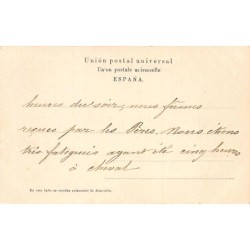 Unión postal universal
Union postale universelle
ESPAÑA.
heures du soir, nous fûmes
reçues par les Pères. Nous étions
très fatiguées ayant été cinq heures
à cheval
En este lado se escribe solamente la dirección.